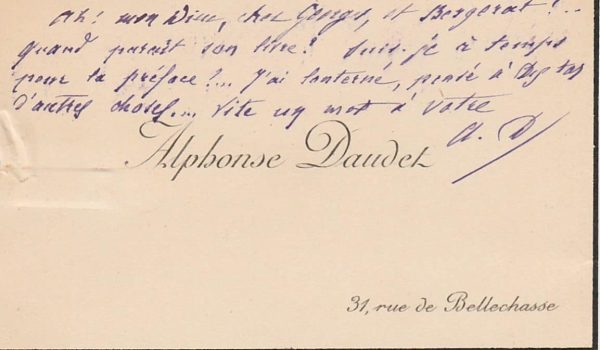 Ah! mon Dieu, cher Georges, et Bergerat!..
quand paraît son livre? Suis-je à temps
pour la préface?... J'ai lanterné, pensé à des tas
d'autres choses... Vite un mot à votre
A. D
Alphonse Daudet
31, rue de Bellechasse